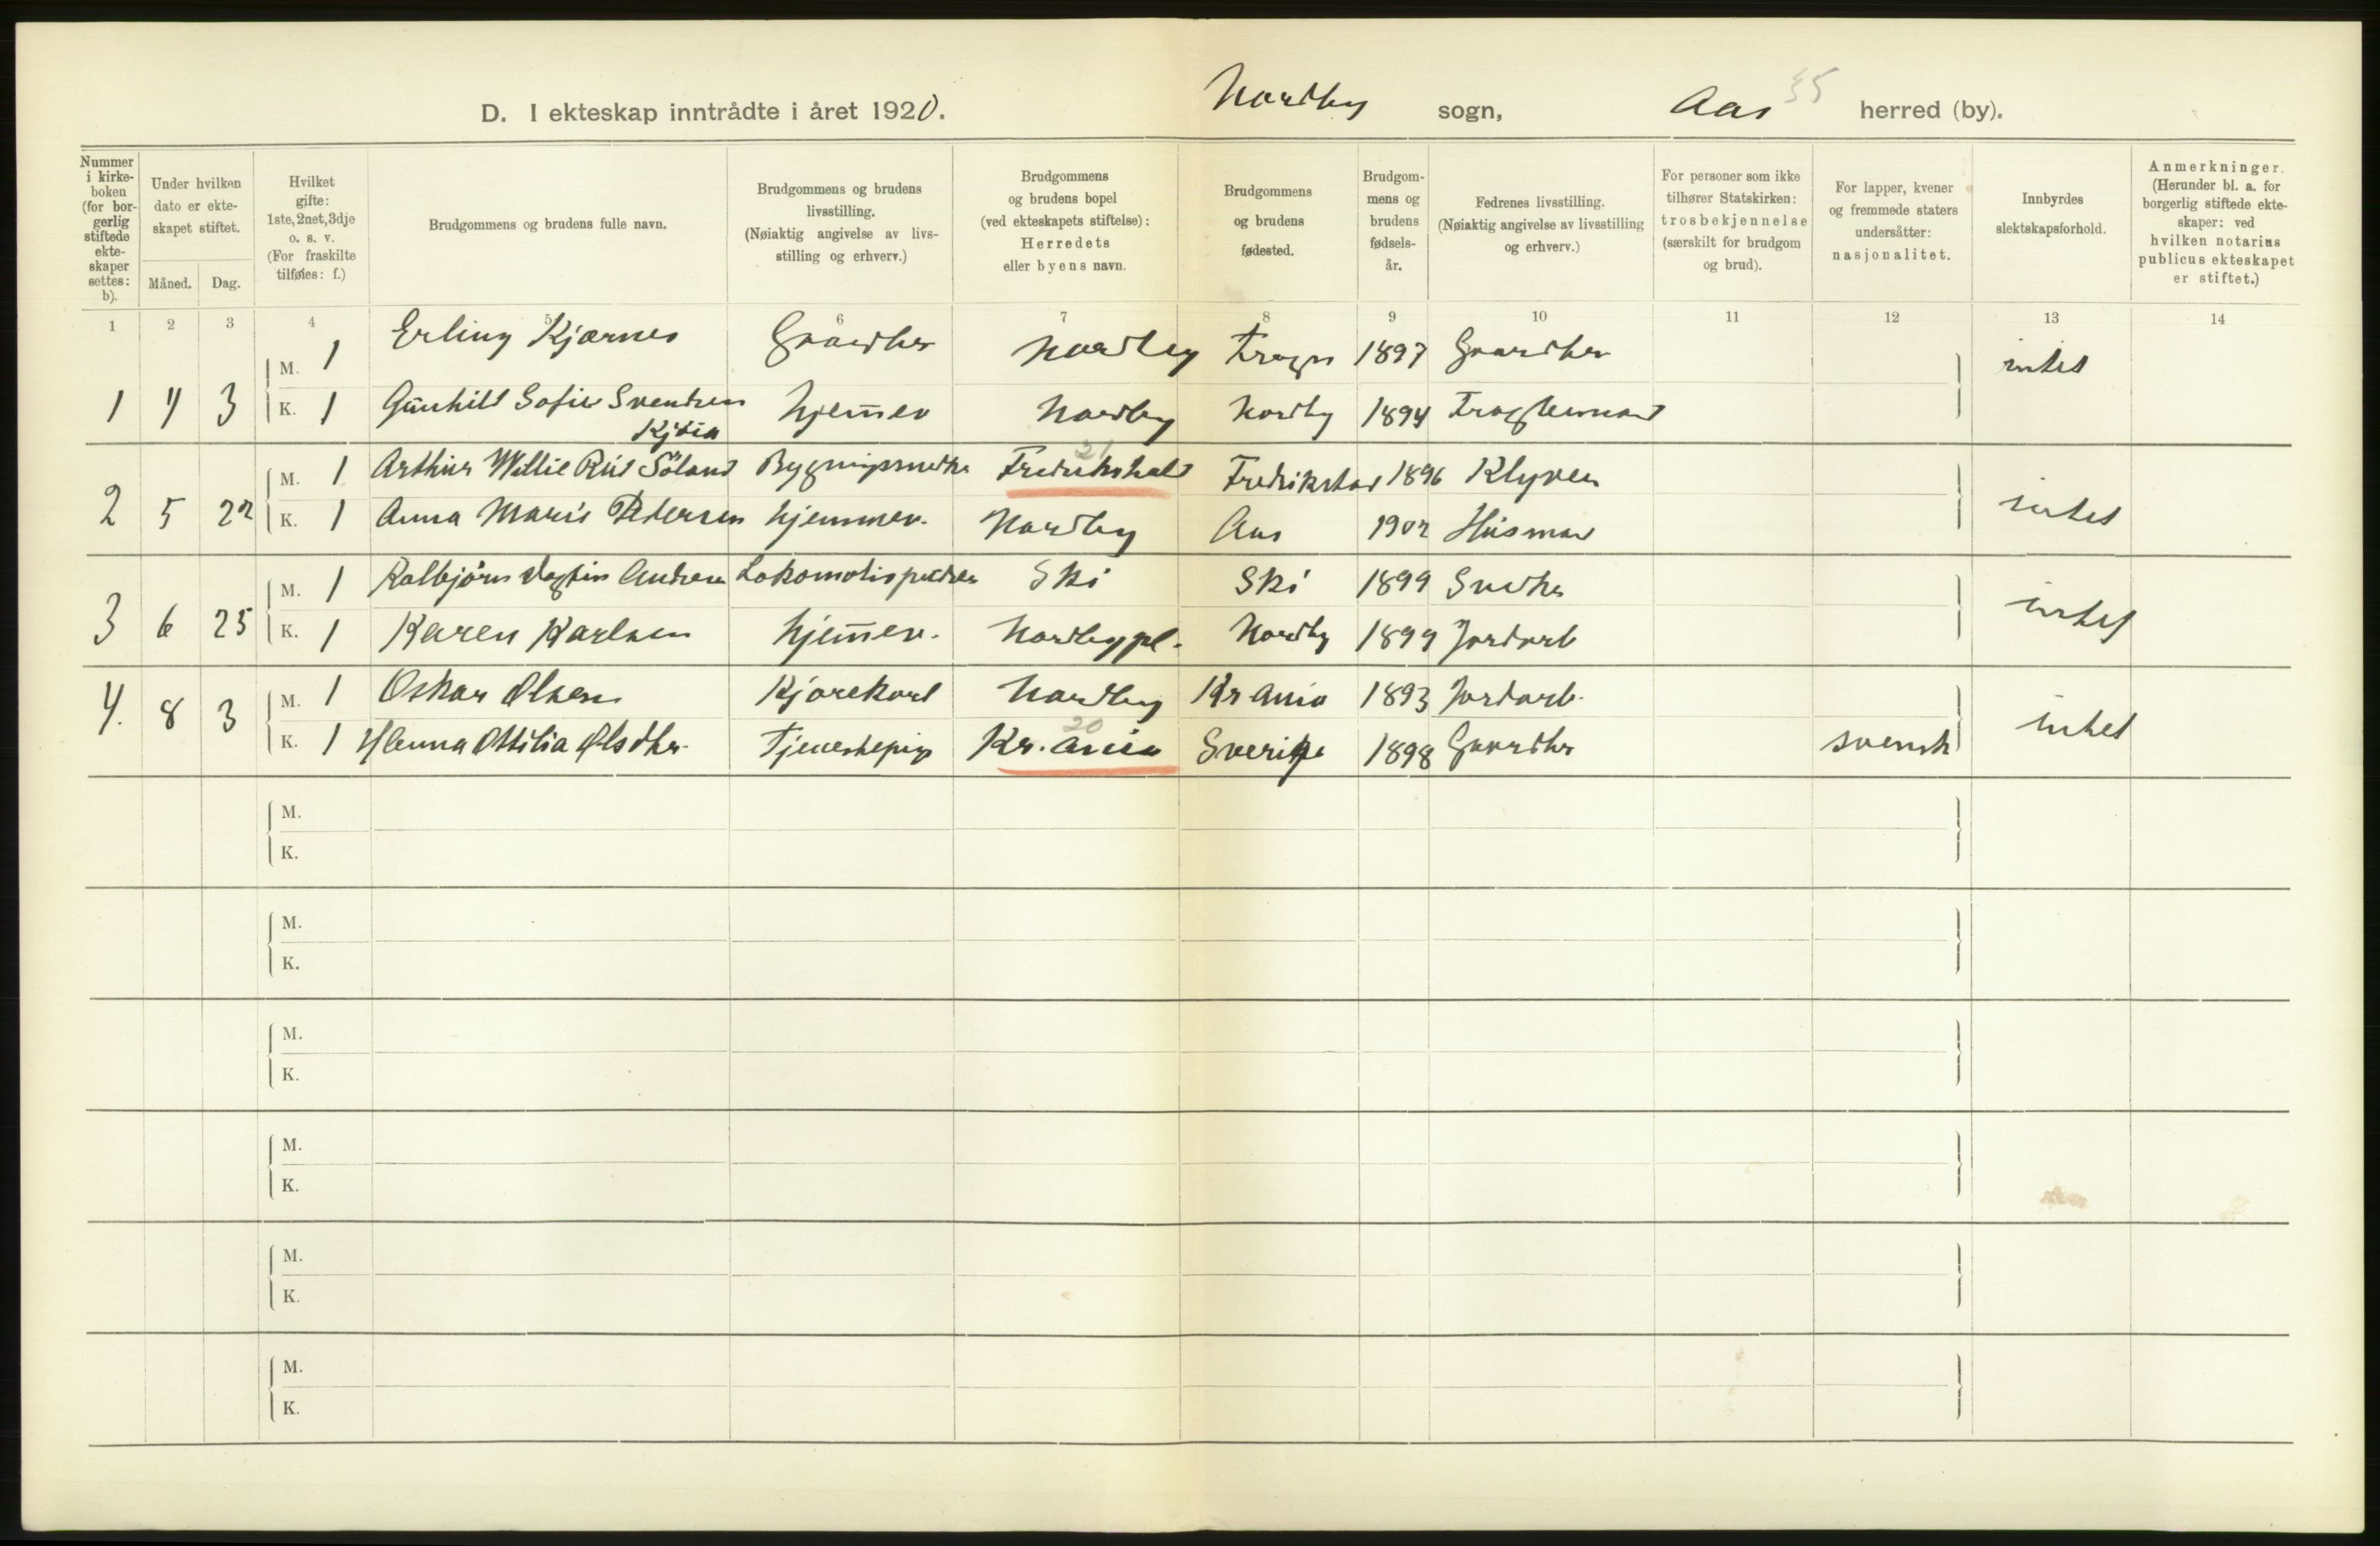 D. I ekteskap inntrådte i året 1920. Nordby sogn, Aas 35 herred (by).
Nummer i kirke-boken (for bor-gerlig stiftede ekte-skaper settes: b).
Under hvilken dato er ekte-skapet stiftet.
Måned. Dag.
Hvilket gifte: 1ste, 2net, 3dje o. s. v. (For fraskilte tilføies: f.)
Brudgommens og brudens fulle navn.
Brudgommens og brudens livsstilling. (Nøiaktig angivelse av livs-stilling og erhverv.)
Brudgommens og brudens bopel (ved ekteskapets stiftelse): Herredets eller byens navn.
Brudgommens og brudens fødested.
Brudgom-mens og brudens fødsels-år.
Fedrenes livsstilling. (Nøiaktig angivelse av livsstilling og erhverv.)
For personer som ikke tilhører Statskirken: trosbekjennelse (særskilt for brudgom og brud).
For lapper, kvener og fremmede staters undersåtter: nasjonalitet.
Innbyrdes slektskapsforhold.
Anmerkninger. (Herunder bl. a. for borgerlig stiftede ekte-skaper: ved hvilken notarius publicus ekteskapet er stiftet.)
1 2 3 4 5 6 7 8 9 10 11 12 13 14
M. 1 Erling Kjærnes Gaardbr Nordby Frogn 1897 Gaardbr intet
1 4 3 K. 1 Gunhild Sofie Svendsen hjemmev Nordby Nordby 1894
Kjøia
M. 1 Arthur Willie Söland Bygningssnedker 21 Fredrikshald Fredrikstad 1896
2 5 22 K. 1 Anna Marie Pedersen hjemmev. Nordby Aas 1902 Husmand intet
M. 1 Kolbjörn Andersen Lokomotivpudser Ski Ski 1899 Snedker
3 6 25 K. 1 Karen Karlsen hjemmev. Nordby pl. Nordby 1899 Jordarb intet
M. 1 Oskar Olsen Kjørekarl Nordby Kr.ania 1893 Jordarb.
4. 8 3 K. 1 Hanna Ottilia Olsdtr. Tjenestepige 20 Kr.ania Sverige 1898 Gaardbr svensk intet
M.
K.
M.
K.
M.
K.
M.
K.
M.
K.
M.
K.